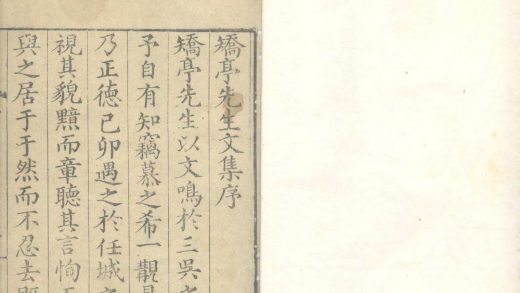 矯亭先生文集序
矯亭先生以文鳴於三吳
予自有知竊慕之希一覩
乃正德己卯遇之於任城
視其貌黯而章聽其言恂
與之居于于然而不忍去